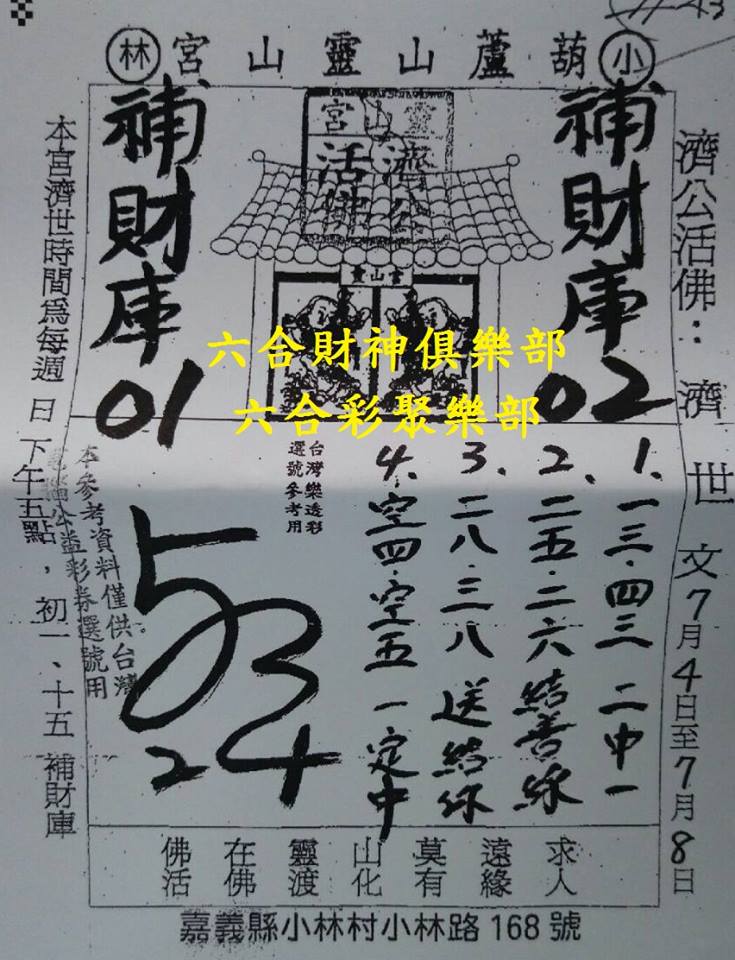 小葫蘆山靈山宮林
#43
濟公活佛：濟世文7月4日至7月8日
補財庫02
靈山宮
濟公
活佛
靈山宮
補財庫01
六合財神俱樂部
六合彩聚樂部
1、一三．四三 二中一
2、二五．二六 結善緣
3、二八．三八 送結緣
4、空四．空五 一定中
台灣樂透彩
選號參考用
5034
2
本參考資料僅供台灣
電腦公益彩券選號用
本宮濟世時間為每週日下午五點，初一、十五補財庫
佛在靈山莫遠求
活佛渡化有緣人
嘉義縣小林村小林路168號